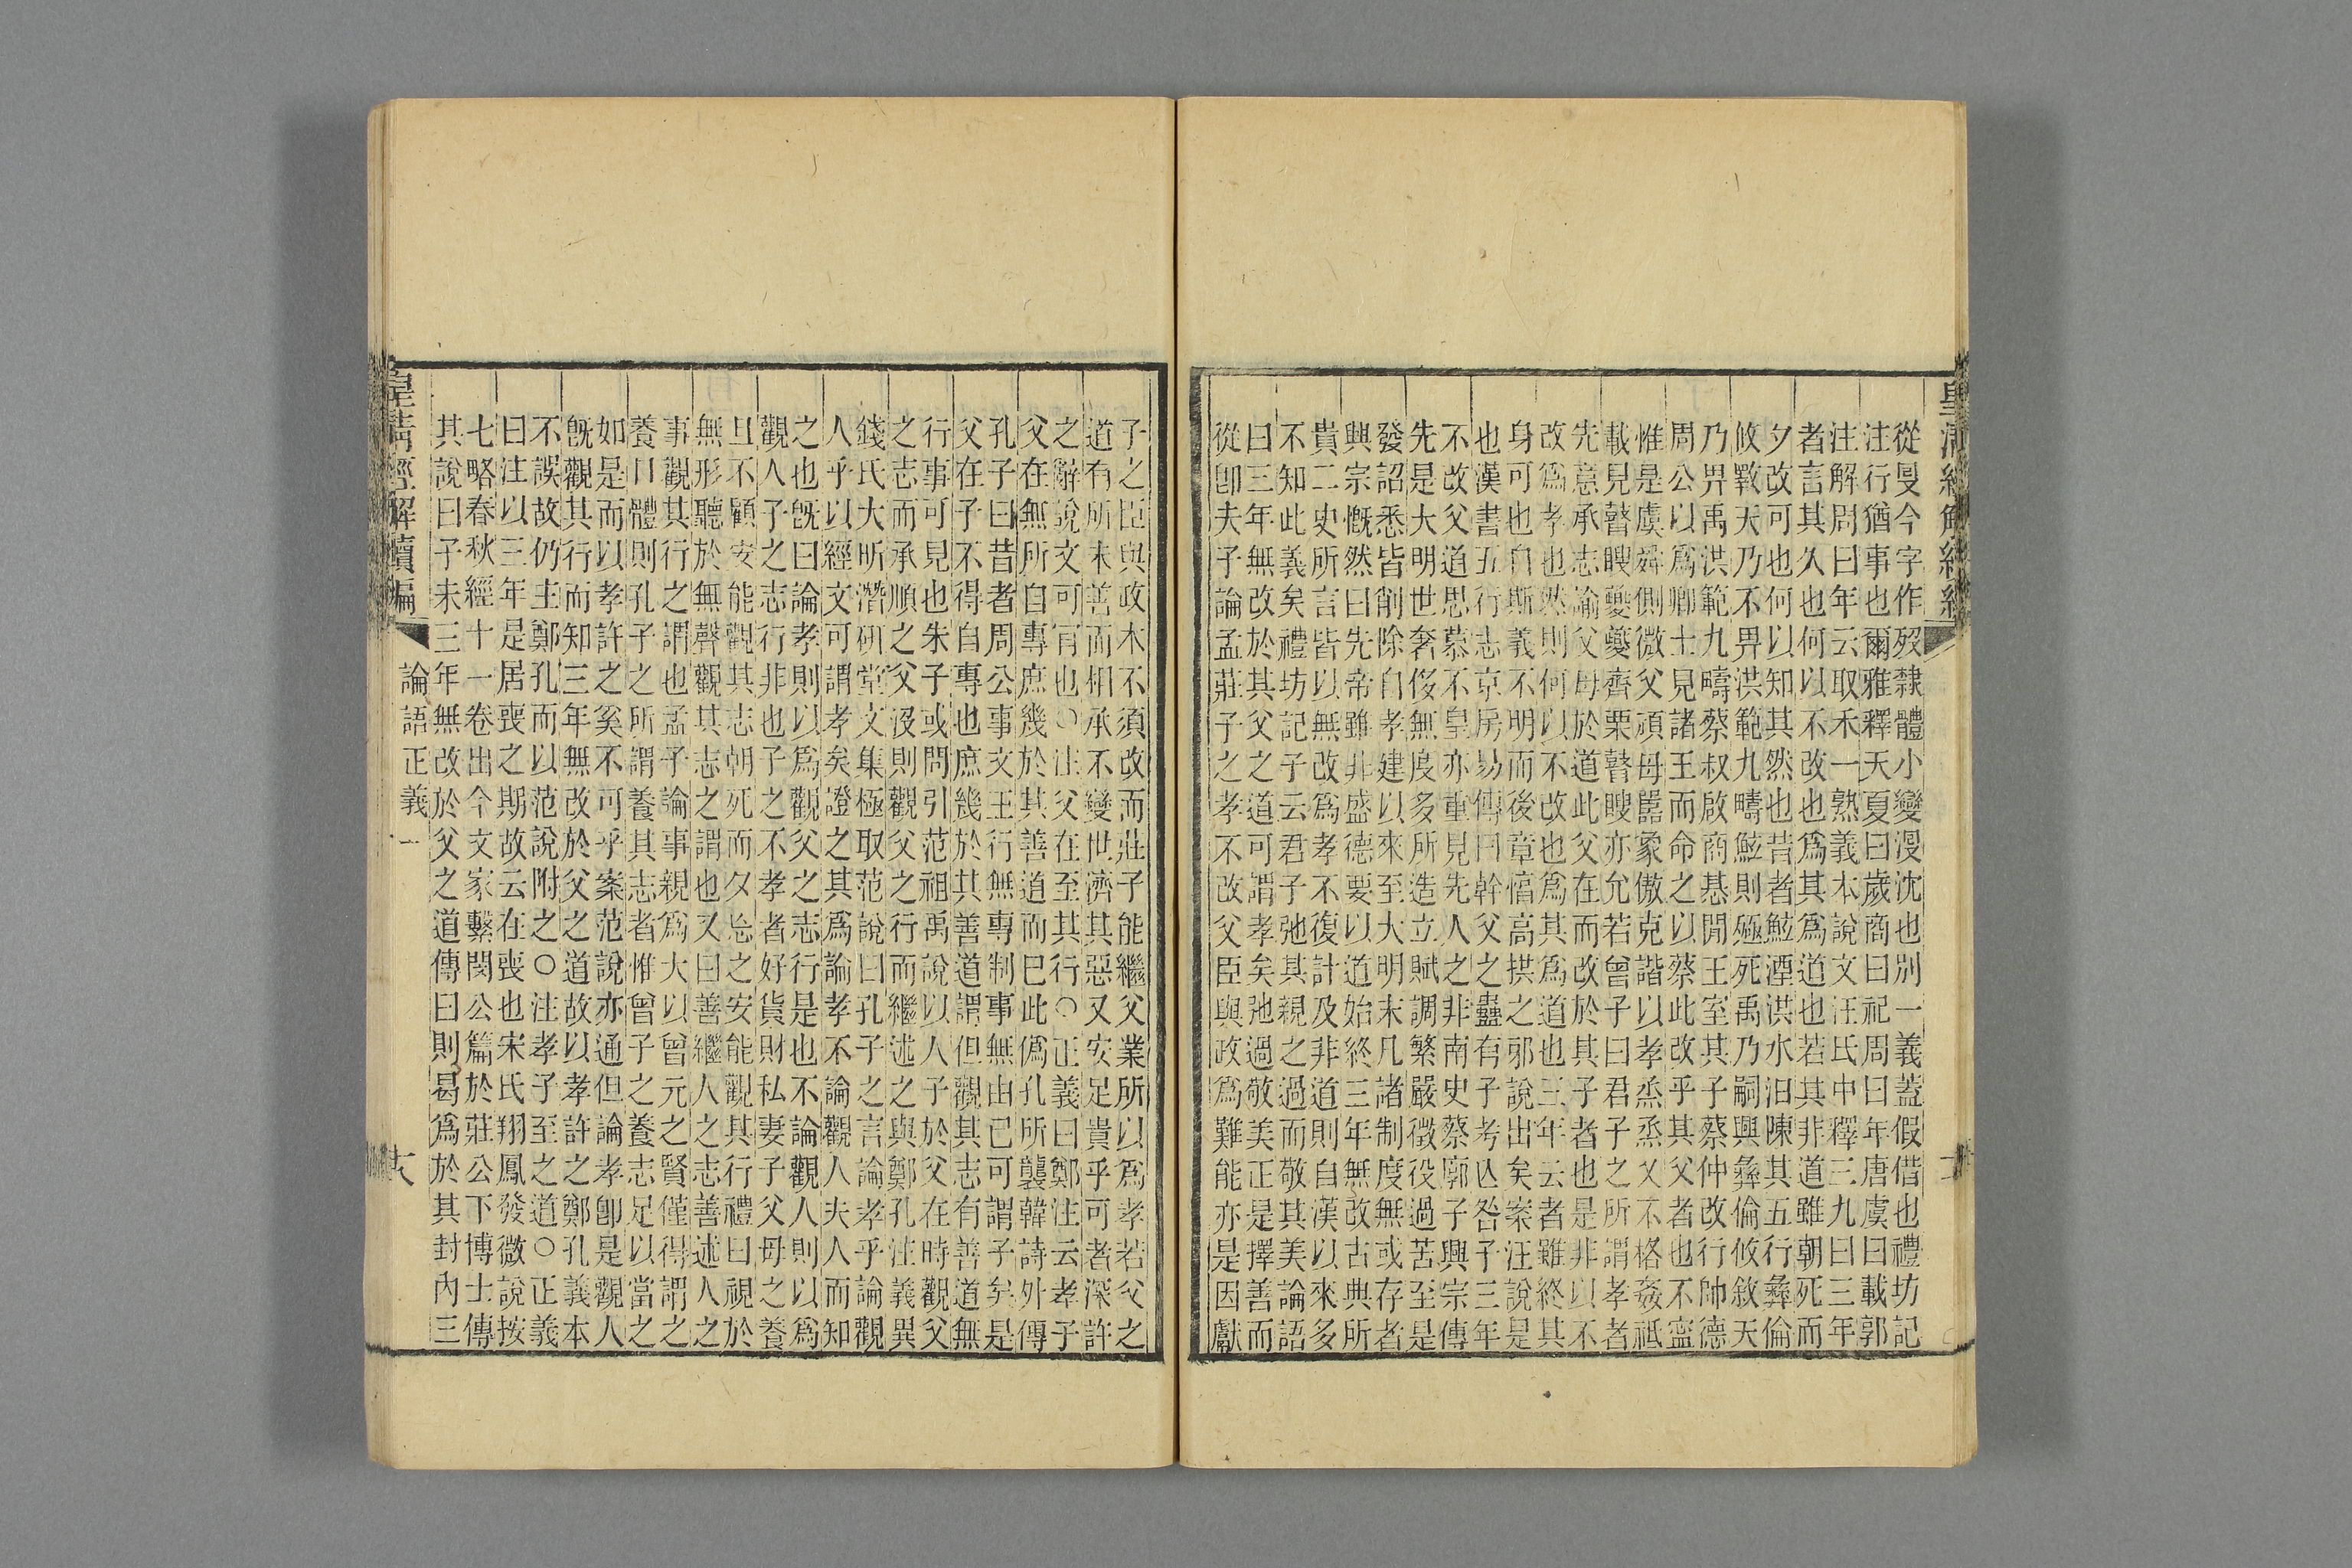 皇清經解續編
從𠬛今字作歿隸體小變漫沈也別一義蓋假借也禮坊記
注行猶事也爾雅釋天夏曰歲商曰祀周曰年唐虞曰載郭
注解周曰年云取禾一熟義本說文汪氏中釋三九曰三年
者言其久也何以不改也爲其爲道也若其非道雖朝死而
夕改可也何以知其然也昔者鯀湮洪水汨陳其五行彝倫
攸斁天乃不畀洪範九疇鯀則殛死禹乃嗣興彝倫攸敘天
乃畀禹洪範九疇蔡叔啟商惎閒王室其子蔡仲改行帥德
周公以爲卿士見諸王而命之以蔡此改乎其父者也不寧
惟是虞舜側微父頑母嚚象傲克諧以孝烝烝乂不格姦祗
載見瞽瞍夔夔齊栗瞽瞍亦允若曾子曰君子之所謂孝者
先意承志諭父母於道此父在而改於其子者也是非以不
改爲孝也然則何以不改也爲其爲道也三年云者雖終其
身可也自斯義不明而後章惇高拱之邪說出矣案汪說是
也漢書五行志京房易傳曰幹父之蠱有子考亾咎子三年
不改父道思慕不皇亦重見先人之非南史蔡廓子興宗傳
先是大明世奢侈無度多所造立賦調繁嚴徵役過苦至是
發詔悉皆削除自孝建以來至大明末凡諸制度無或存者
興宗慨然曰先帝雖非盛德要以道始終三年無改古典所
貴二史所言皆以無改爲孝不復計及非道則自漢以來多
不知此義矣禮坊記子云君子弛其親之過而敬其美論語
曰三年無改於其父之道可謂孝矣弛過敬美正是擇善而
從卽夫子論孟莊子之孝不改父臣與政爲難能亦是因獻
子之臣與政本不須改而莊子能繼父業所以爲孝若父之
道有所未善而相承不變世濟其惡又安足貴乎可者深許
之辭說文可肎也○注父在至其行○正義曰鄭注云孝子
父在無所自專庶幾於其善道而已此僞孔所襲韓詩外傳
孔子曰昔者周公事文王行無專制事無由己可謂子矣是
父在子不得自專也庶幾於其善道謂但觀其志有善道無
行事可見也朱子或問引范祖禹說以人子於父在時觀父
之志而承順之父沒則觀父之行而繼述之與鄭孔注義異
錢氏大昕潛研堂文集極取范說曰孔子之言論孝乎論觀
人乎以經文可謂孝矣證之其爲論孝不論觀人夫人而知
之也旣曰論孝則以爲觀父之志行是也不論觀人則以爲
觀人子之志行非也子之不孝者好貨財私妻子父母之養
且不顧安能觀其志朝死而夕忘之安能觀其行禮曰視於
無形聽於無聲觀其志之謂也又曰善繼人之志善述人之
事觀其行之謂也孟子論事親爲大以曾元之賢僅得謂之
養口體則孔子之所謂養其志者惟曾子之養志足以當之
如是而以孝許之奚不可乎案范說亦通但論孝卽是觀人
旣觀其行而知三年無改於父之道故以孝許之鄭孔義本
不誤故仍主鄭孔而以范說附之○注孝子至之道○正義
曰注以三年是居喪之期故云在喪也宋氏翔鳳發微說按
七略春秋經十一卷出今文家繫閔公篇於莊公下博士傳
其說曰子未三年無改於父之道傳曰則曷爲於其封內三
皇清經解續編
論語正義一